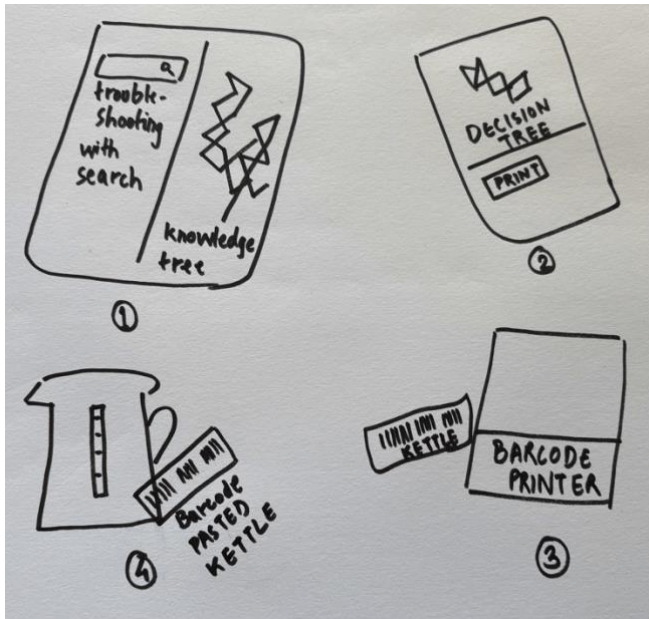 trouble-
shooting
with
search
knowledge
tree
①
DECISION
TREE
PRINT
②
Barcode
PASTED
KETTLE
④
KETTLE
BARCODE
PRINTER
③